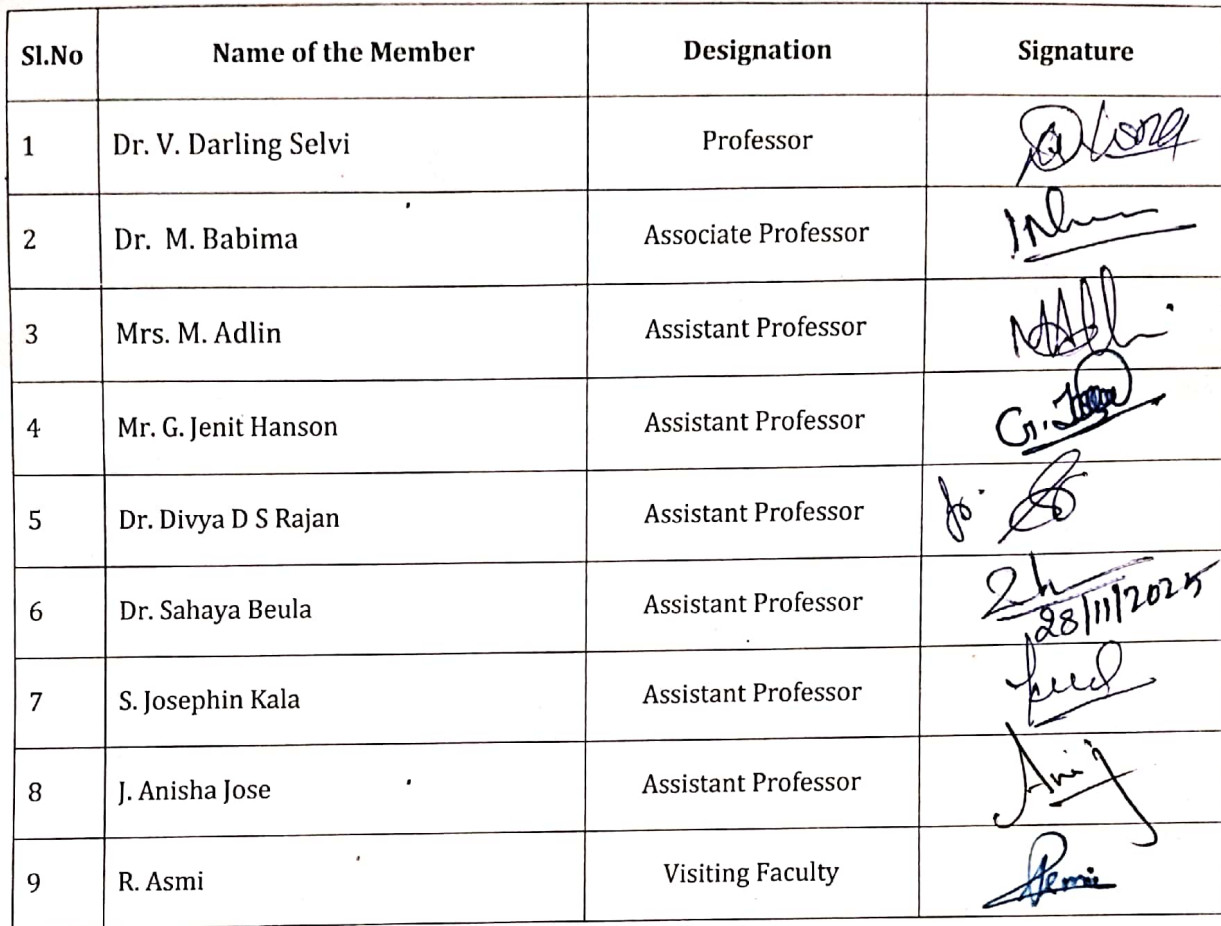 Sl.No Name of the Member Designation Signature
1 Dr. V. Darling Selvi Professor
2 Dr. M. Babima Associate Professor
3 Mrs. M. Adlin Assistant Professor
4 Mr. G. Jenit Hanson Assistant Professor
5 Dr. Divya D S Rajan Assistant Professor
6 Dr. Sahaya Beula Assistant Professor
28/11/2025
7 S. Josephin Kala Assistant Professor
8 J. Anisha Jose Assistant Professor
9 R. Asmi Visiting Faculty